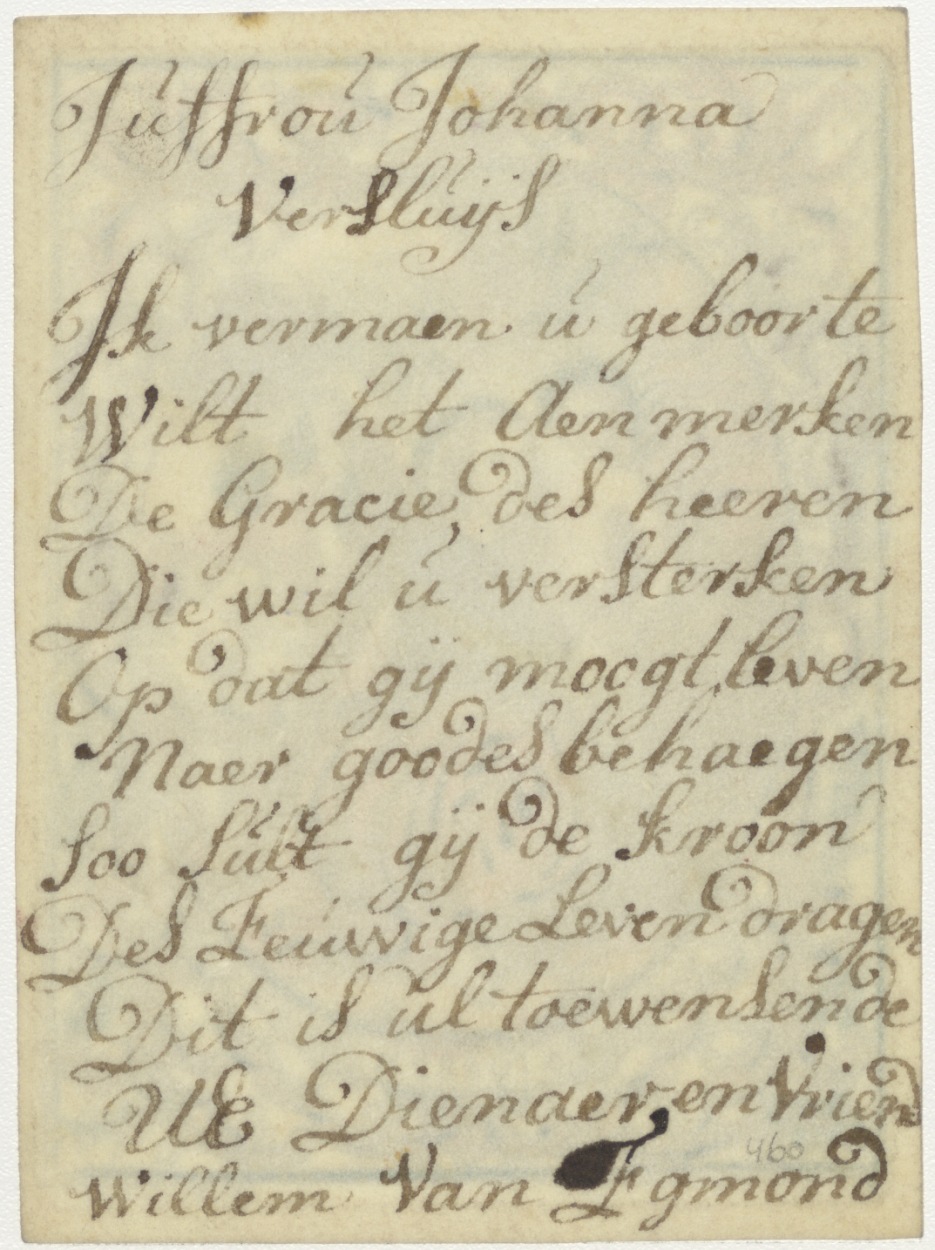 Juffrou Johanna
Versluijs
Ik vermaen u geboorte
Wilt het Aenmerken
De Gracie des heeren
Die wil u versterken
Op dat gij moogt leven
Naer goodes behaegen
Soo Sult gij de kroon
Des Eeuwige Leven dragen
Dit is ul toewensende
UE Dienaer en Vriend
460
Willem Van Egmond